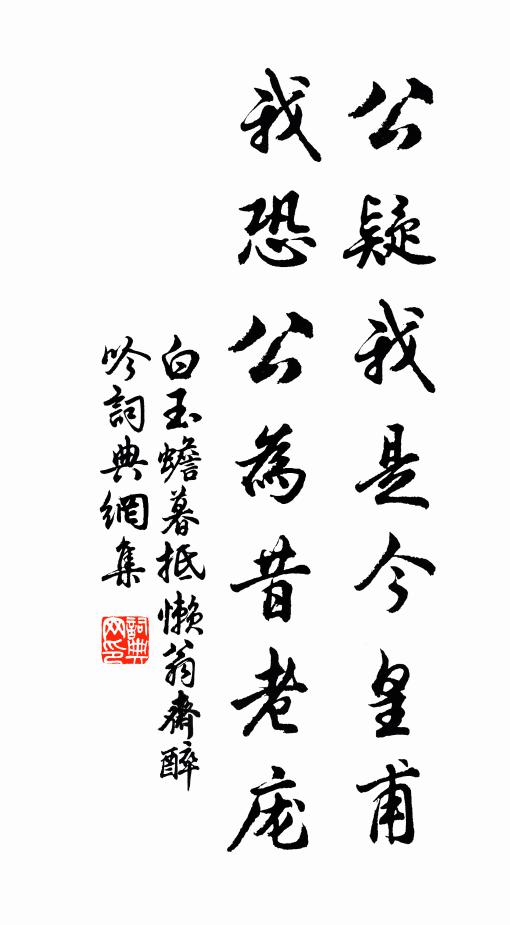 公疑我是今皇甫
我恐公為昔老庞
白玉蟾暮抵懒翁齋醉
吟詞典網集
詞典网印